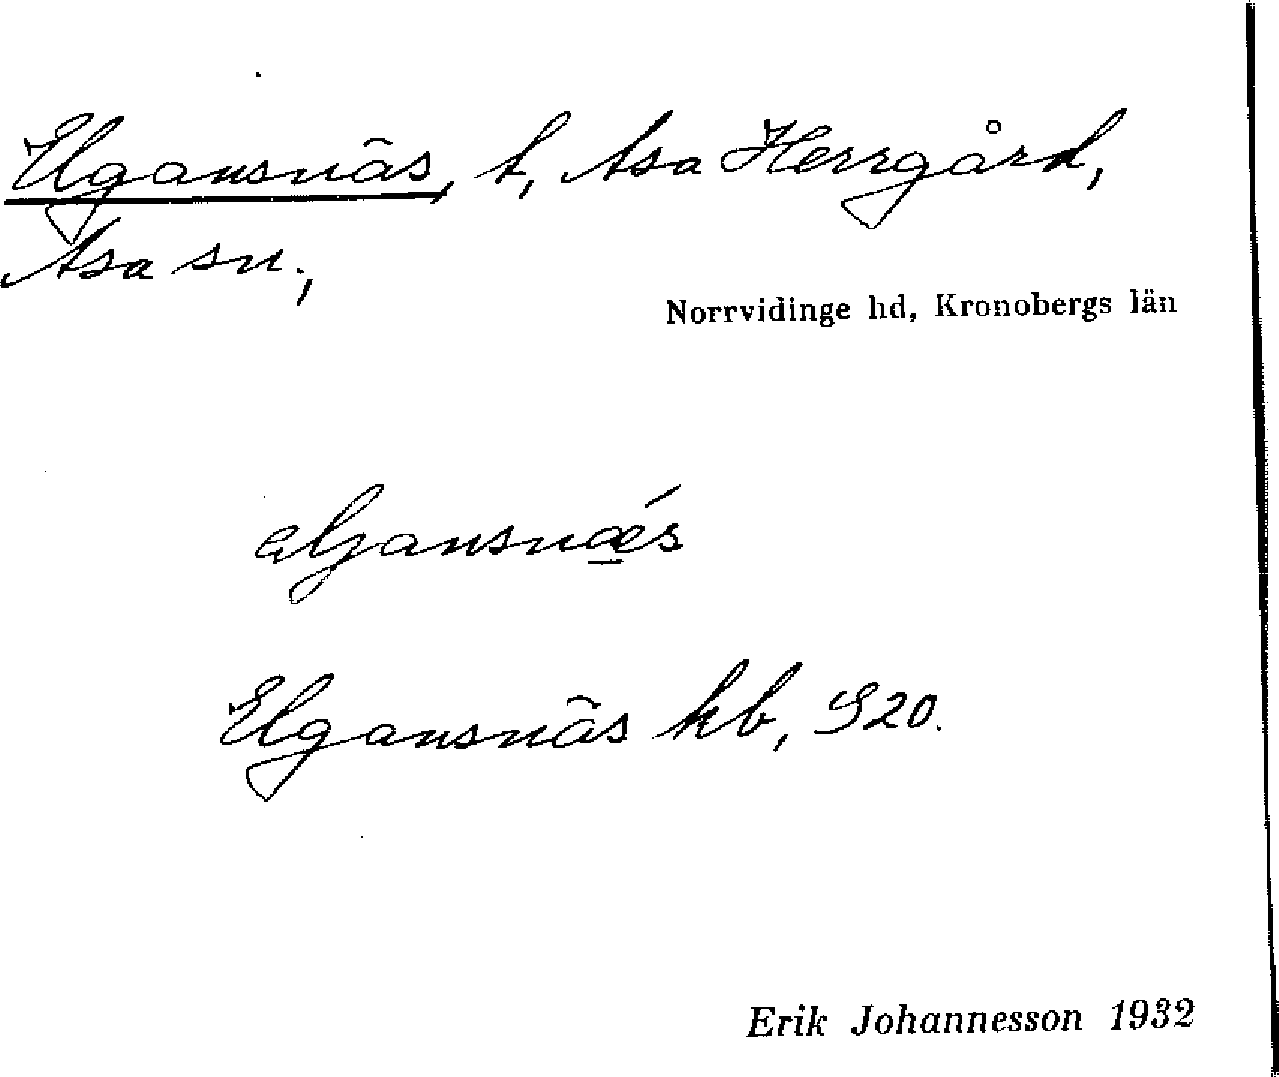 Elgansnäs, t, Asa Herrgård,
Asa sn.,
Norrvidinge hd, Kronobergs län
eljansnǽs
Elgansnäs kb, S20.
Erik Johannesson 1932